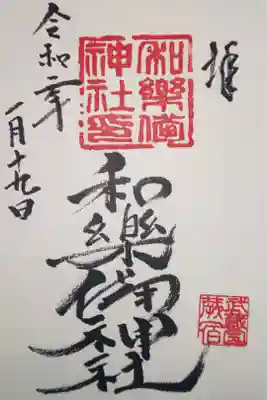 拝
和樂備
神社
和樂備神社
武蔵国
蕨宿
令和二年
一月十九日